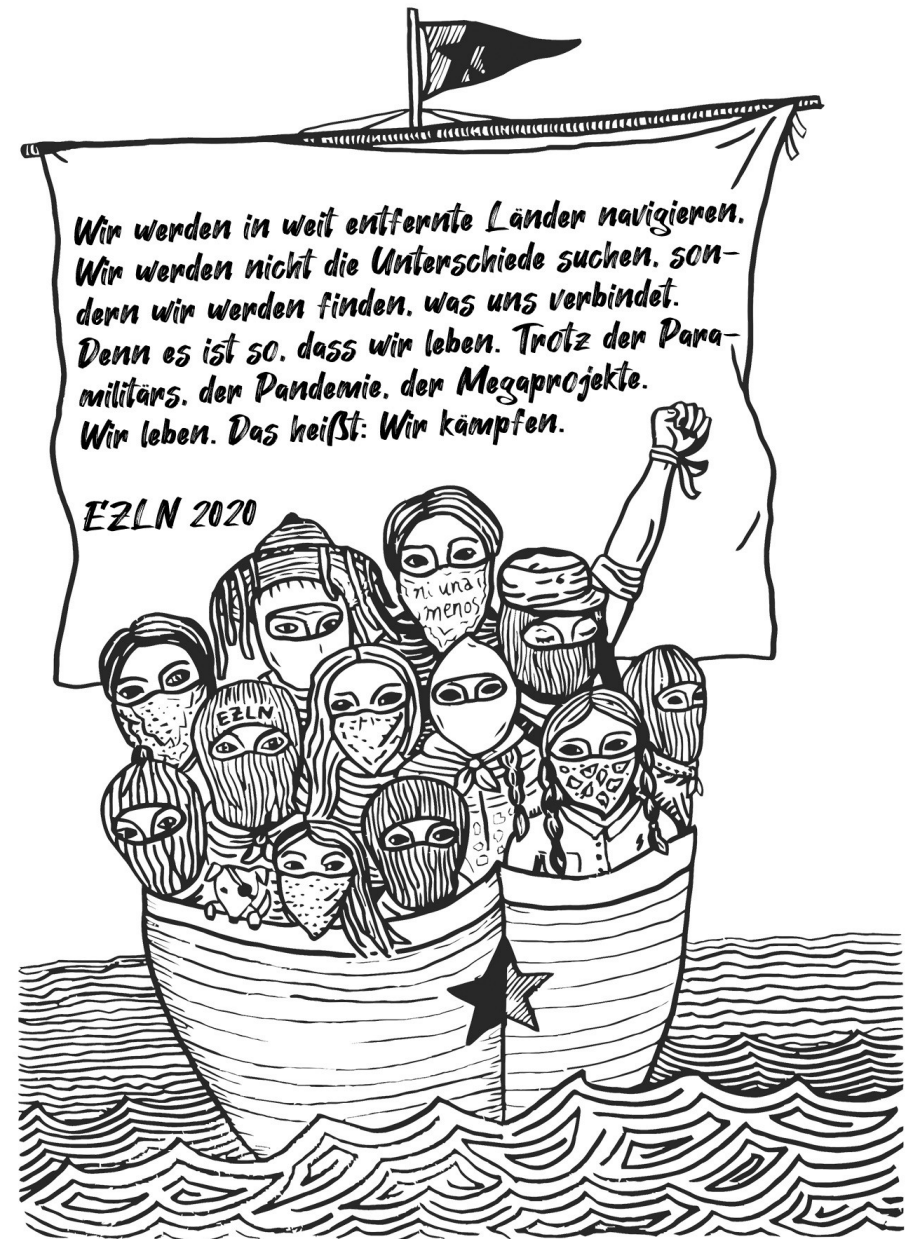 Wir werden in weit entfernte Länder navigieren.
Wir werden nicht die Unterschiede suchen, son-
dern wir werden finden, was uns verbindet.
Denn es ist so, dass wir leben. Trotz der Para-
militärs, der Pandemie, der Megaprojekte.
Wir leben. Das heißt: Wir kämpfen.
EZLN 2020
ni una
menos
EZLN